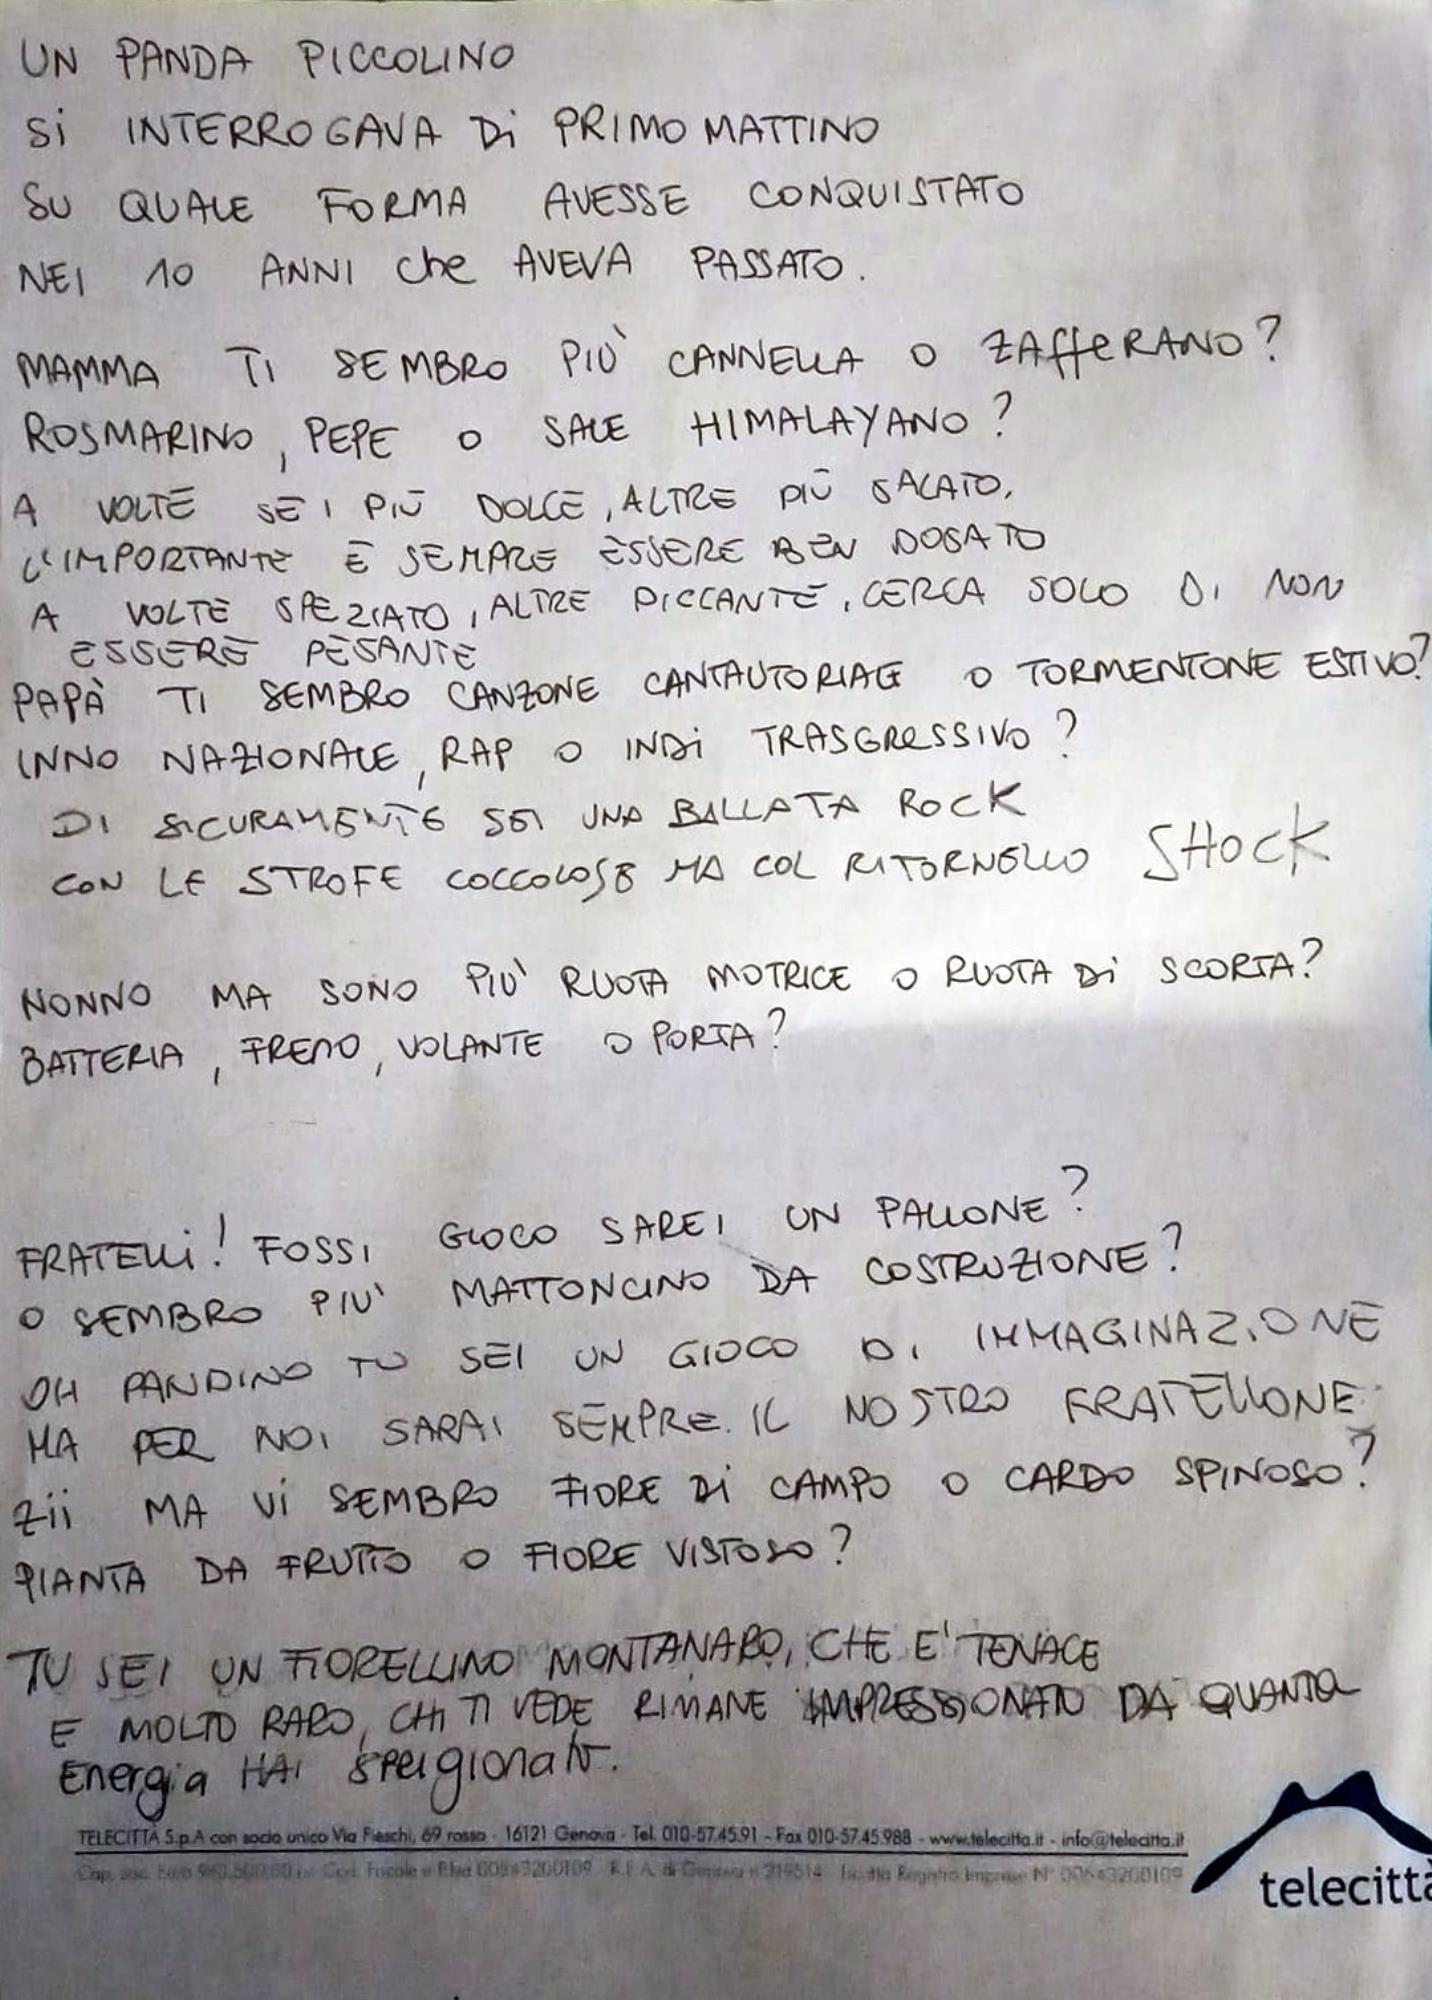 UN PANDA PICCOLINO
Si INTERROGAVA Di PRIMO MATTINO
SU QUALE FORMA AVESSE CONQUISTATO
NEI 10 ANNI che AVEVA PASSATO.
MAMMA TI SEMBRO PIÙ CANNELLA O ZAffeRANO?
ROSMARINO, PEPE O SALE HIMALAYANO?
A VOLTE SEI PIÙ DOLCE, ALTRE PIÙ SALATO,
L'IMPORTANTE È SEMPRE ESSERE BEN DOSATO
A VOLTE SPEZIATO, ALTRE PICCANTE, CERCA SOLO DI NON
ESSERE PESANTE
PAPÀ TI SEMBRO CANZONE CANTAUTORIALE O TORMENTONE ESTIVO?
INNO NAZIONALE, RAP O INDi TRASGRESSIVO?
DI SICURAMENTE SEI UNA BALLATA ROCK
CON LE STROFE COCCOLOSE MA COL RITORNELLO SHOCK
NONNO MA SONO PIU' RUOTA MOTRICE O RUOTA Di SCORTA?
BATTERIA, FRENO, VOLANTE O PORTA?
FRATELLi! FOSSI GIOCO SAREI UN PALLONE?
O SEMBRO PIU' MATTONCINO DA COSTRUZIONE?
OH PANDINO TU SEI UN GIOCO DI IMMAGINAZIONE
MA PER NOI SARAI SEMPRE IL NOSTRO FRATELLONE
Zii MA Vi SEMBRO FIORE Di CAMPO O CARDO SPINOSO?
PIANTA DA FRUTTO O FIORE VISTOSO?
TU SEI UN FIORELLINO MONTANARO, CHE E' TENACE
E MOLTO RARO, CHI TI VEDE RIMANE IMPRESSIONATO DA QUANTA
Energia HAI sprigionato.
TELECITTÀ S.p.A con socio unico Via Fieschi, 69 rosso - 16121 Genova - Tel. 010-57.45.91 - Fax 010-57.45.988 - www.telecitta.it - info@telecitta.it
Cap. soc. Euro Cod. Fiscale e P.Iva 00643200109 - R.E.A. di Genova n 219514 - Iscritta Registro Imprese N° 00643200109
telecittà